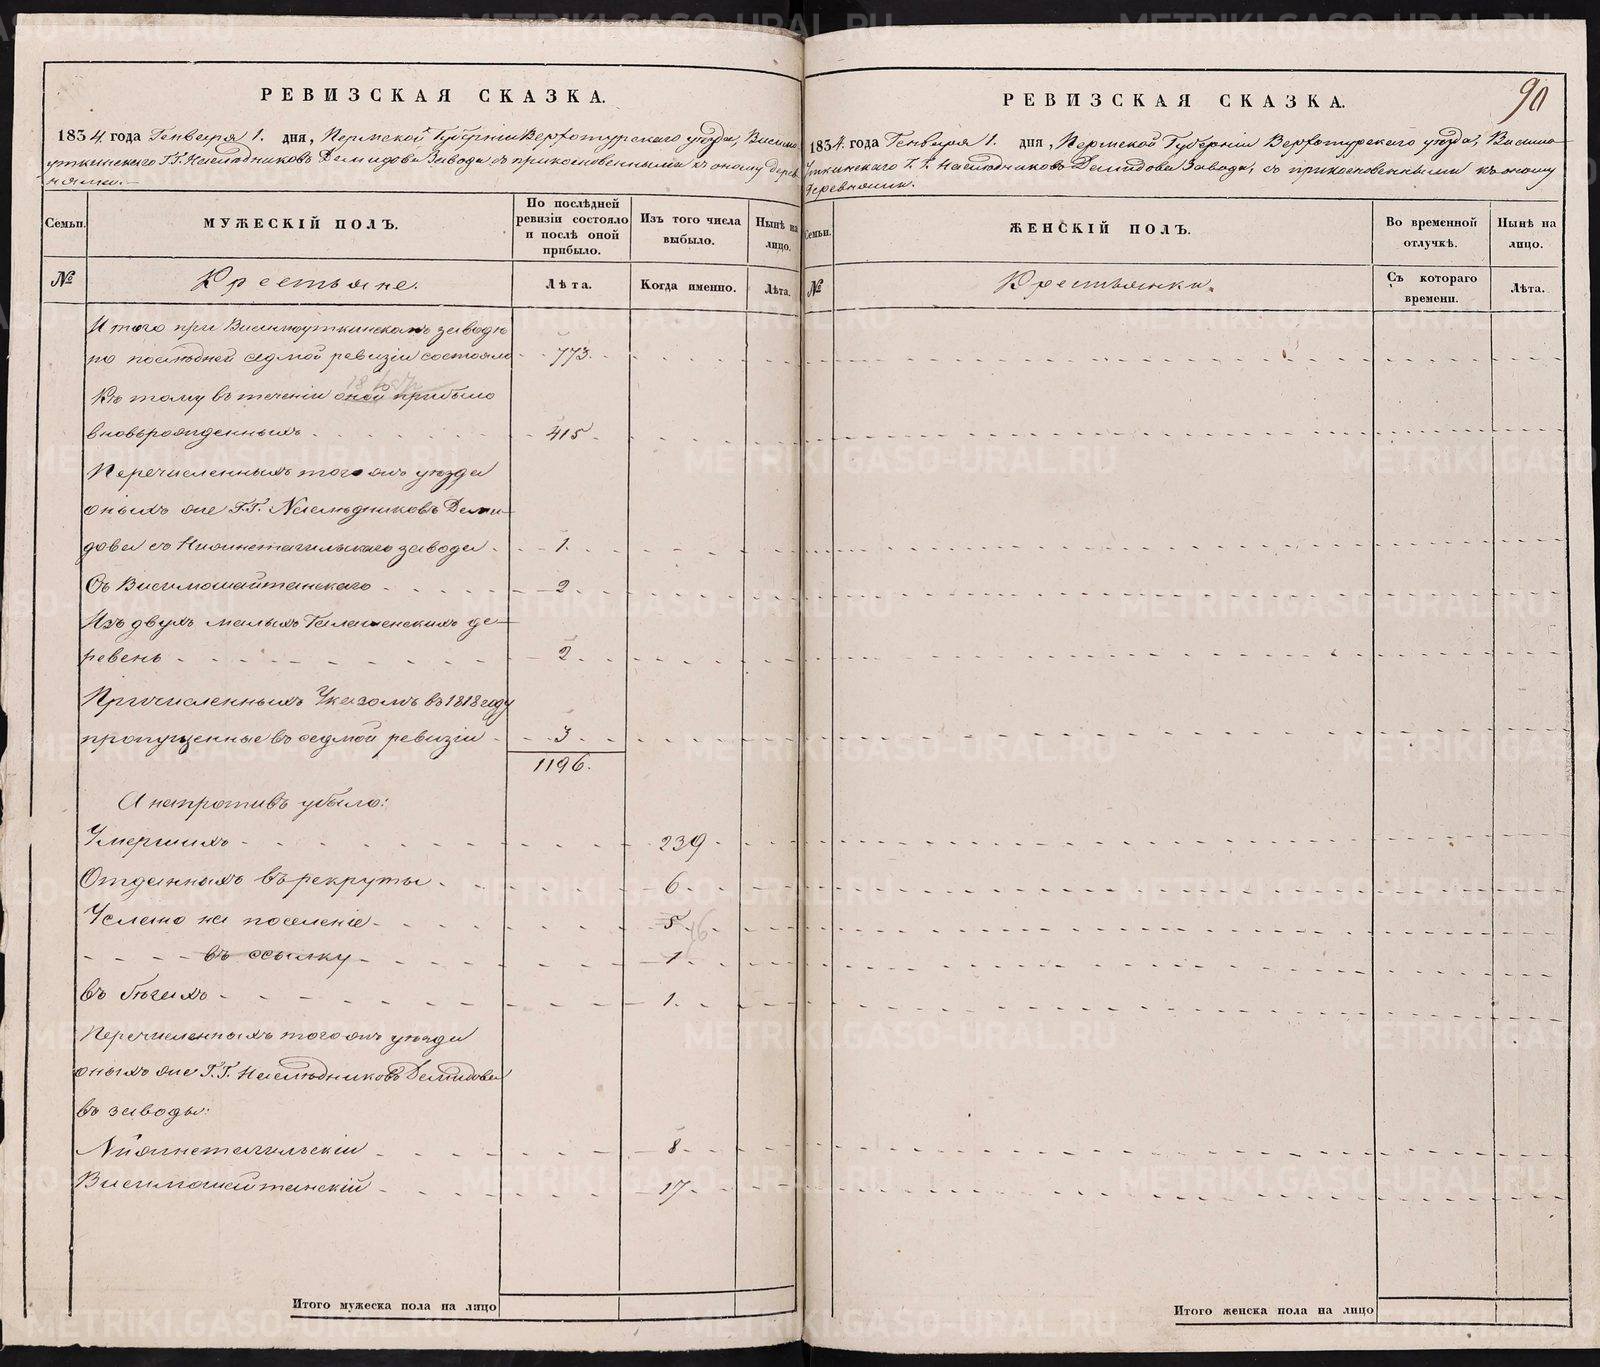 РЕВИЗСКАЯ СКАЗКА.
1834. года Генваря 1. дня, Пермской Губерніи Верхотурскаго уѣзда, Висимо-
уткинскаго Г.Г. Наследниковъ Демидова Завода, съ прикосновенными къ оному дерев-
нями.
Семьи.
МУЖЕСКІЙ ПОЛЪ.
По послѣдней
ревизіи состояло
и послѣ оной
прибыло.
Изъ того числа
выбыло.
Нынѣ на
лицо.
№
Крестьяне.
Лѣта.
Когда именно.
Лѣта.
Итого при Висимоуткинскомъ заводѣ
по послѣдней седмой ревизіи состояло 773.
Къ тому въ теченіи оной прибыло
вновьрожденныхъ 415
Перечисленныхъ того жъ уѣзда
оныхъ же Г.Г. Наслѣдниковъ Деми-
дова съ Нижнетагильскаго завода 1.
Съ Висимошайтанскаго 2
Изъ двухъ малыхъ Галашенскихъ де-
ревень 2
Причисленныхъ Указомъ въ 1818 году
пропущенные въ седмой ревизіи 3
1196.
А напротивъ убыло:
Умершихъ 239
Отданныхъ въ рекруты 6
Услано на поселеніе 5
въ ссылку 1
въ бѣгахъ 1.
Перечисленныхъ того жъ уѣзда
оныхъ же Г.Г. Наслѣдниковъ Демидова
въ заводы:
Нижнетагильскій 8
Висимошайтанскій 17
Итого мужеска пола на лицо
90
РЕВИЗСКАЯ СКАЗКА.
1834. года Генваря 1. дня, Пермской Губерніи Верхотурскаго уѣзда, Висимо-
уткинскаго Г.Г. Наследниковъ Демидова Завода, съ прикосновенными къ оному
деревнями.
Семьи.
ЖЕНСКІЙ ПОЛЪ.
Во временной
отлучкѣ.
Нынѣ на
лицо.
№
Крестьянки.
Съ котораго
времени.
Лѣта.
Итого женска пола на лицо
METRIKI.GASO-URAL.RU